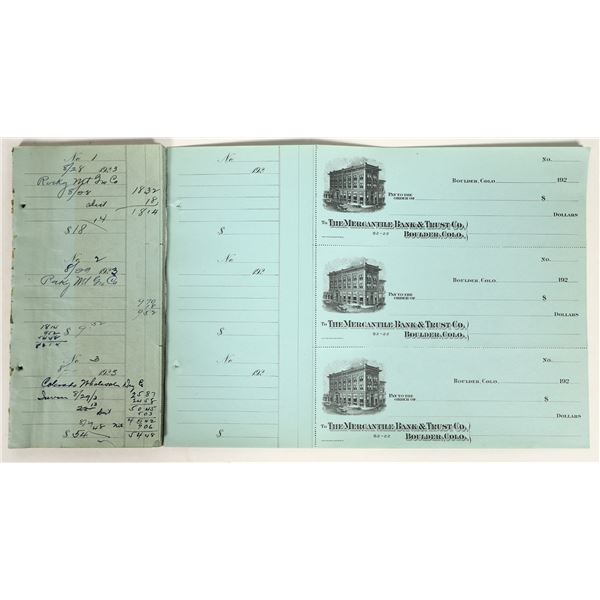 No. 1
8/28 1923
Rocky Mt Gro Co
8/08 1832
disct 18
14 1814
$18
No. 2
1923
Rocky Mt Gro Co
470
18
952
1814
952
$9 52
No. 3
1923
Colorado Wholesale Drug Co
Invoice 8/29/3 2587
2458
5045
503
4542
906
$54 5448
No.
192
$
No.
192
$
No.
192
$
No.
Boulder, Colo. 192
Pay to the order of $
Dollars
To The Mercantile Bank & Trust Co.
82-22 Boulder, Colo.
No.
Boulder, Colo. 192
Pay to the order of $
Dollars
To The Mercantile Bank & Trust Co.
82-22 Boulder, Colo.
No.
Boulder, Colo. 192
Pay to the order of $
Dollars
To The Mercantile Bank & Trust Co.
82-22 Boulder, Colo.